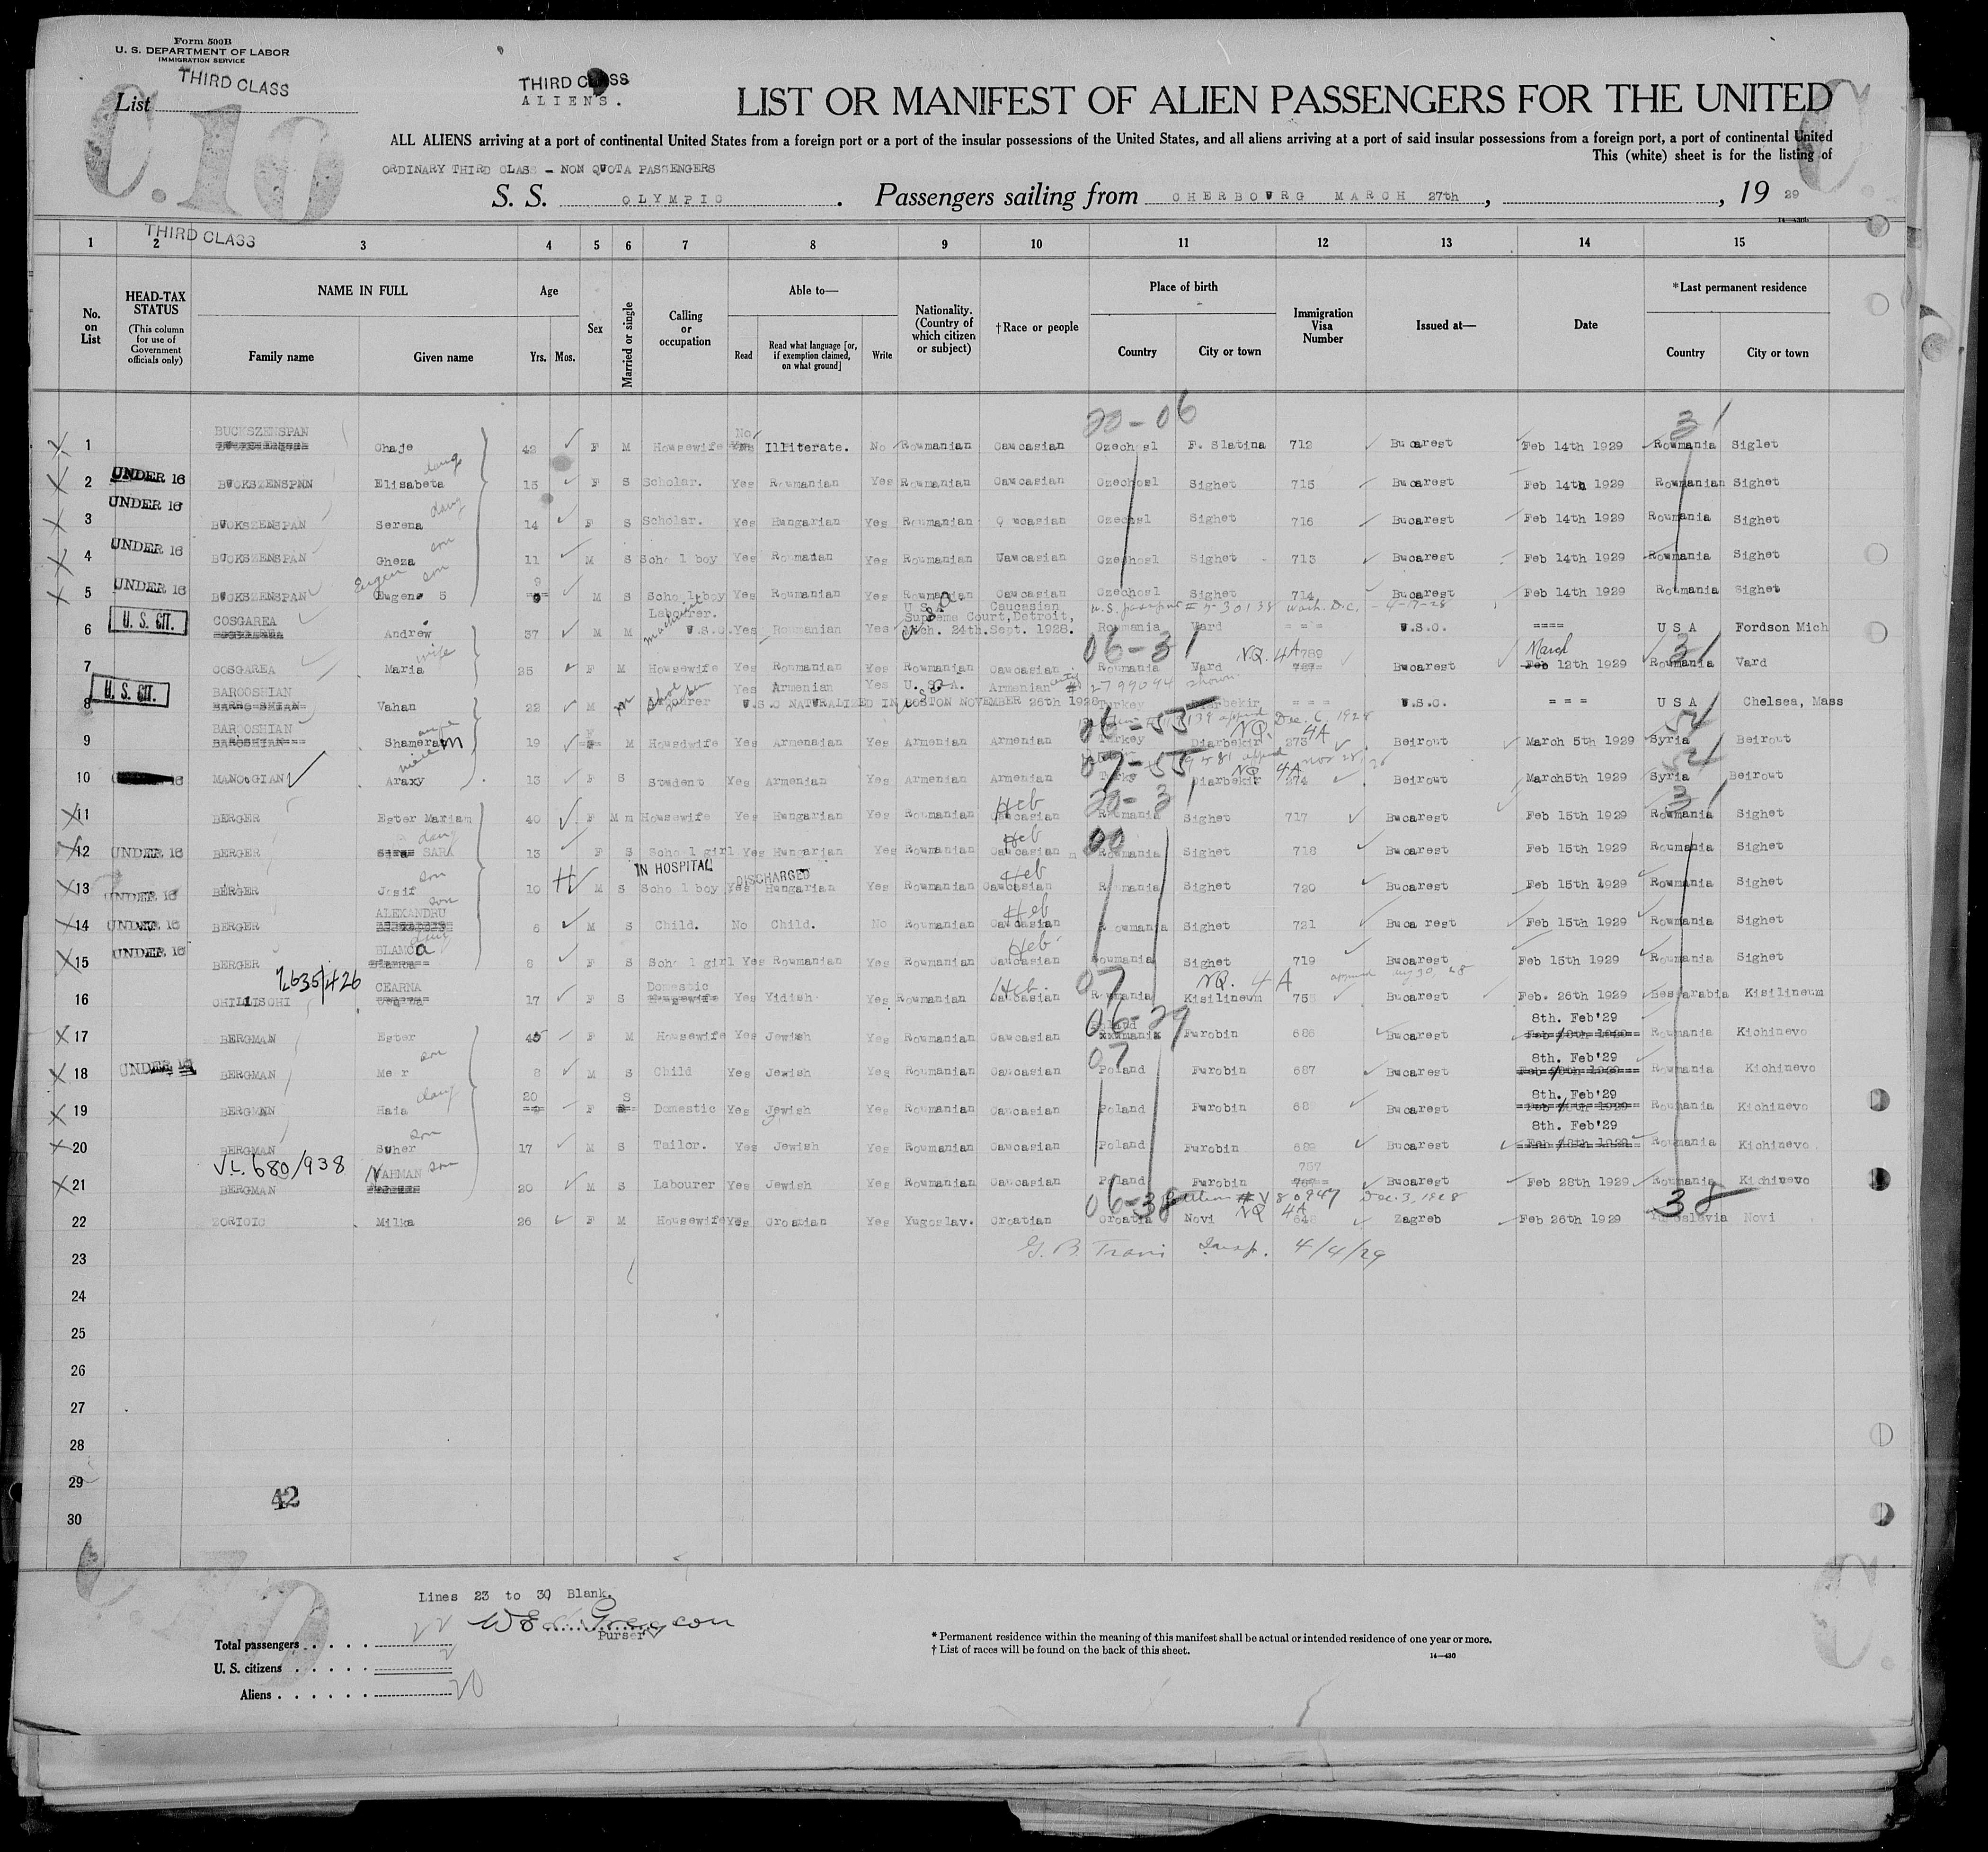 Form 500B
U. S. DEPARTMENT OF LABOR
IMMIGRATION SERVICE
THIRD CLASS
List
C.10
THIRD CLASS
ALIENS.
LIST OR MANIFEST OF ALIEN PASSENGERS FOR THE UNITED
ALL ALIENS arriving at a port of continental United States from a foreign port or a port of the insular possessions of the United States, and all aliens arriving at a port of said insular possessions from a foreign port, a port of continental United
This (white) sheet is for the listing of
ORDINARY THIRD CLASS - NON QUOTA PASSENGERS
S. S. OLYMPIC. Passengers sailing from CHERBOURG MARCH 27th, , 19 29
THIRD CLASS
1 2 3 4 5 6 7 8 9 10 11 12 13 14 15
No. on List
HEAD-TAX STATUS (This column for use of Government officials only)
NAME IN FULL Family name Given name
Age Yrs. Mos.
Sex
Married or single
Calling or occupation
Able to— Read Read what language [or, if exemption claimed, on what ground] Write
Nationality. (Country of which citizen or subject)
†Race or people
Place of birth Country City or town
Immigration Visa Number
Issued at—
Date
*Last permanent residence Country City or town
20-06 31
1 BUCKSZENSPAN Chaje 42 F M Housewife No Illiterate. No Roumanian Caucasian Czechosl F. Slatina 712 Bucarest Feb 14th 1929 Roumania Siglet
2 UNDER 16 BUOKSZENSPNN Elisabeta daug 15 F S Scholar. Yes Roumanian Yes Roumanian Caucasian Czechosl Sighet 715 Bucarest Feb 14th 1929 Roumanian Sighet
3 UNDER 16 BUOKSZENSPAN Serena daug 14 F S Scholar. Yes Hungarian Yes Roumanian C ucasian Czechsl Sighet 716 Bucarest Feb 14th 1929 Roumania Sighet
4 UNDER 16 BUOKSZENSPAN Gheza son 11 M S Scho l boy Yes Roumanian Yes Roumanian Caucasian Czechosl Sighet 713 Bucarest Feb 14th 1929 Roumania Sighet
5 UNDER 16 BUOKSZENSPAN Eugen Eugene 5 son 9 M S School boy Yes Roumanian Yes Roumanian Caucasian Czechosl Sighet 714 Bucarest Feb 14th 1929 Roumania Sighet
6 U. S. CIT. COSGAREA Andrew 37 M M Labourer. machinist U.S.C. Yes Roumanian Yes U S A Caucasian Supreme Court,Detroit, Mich. 24th.Sept. 1928. Roumania Vard U.S.C. ==== U S A Fordson Mich
U.S. passport # 530138 Wash. D.C. - 4-17-28
06-31 N.Q. 4A 31
7 COSGAREA Maria wife 25 F M Housewife Yes Roumanian Yes Roumanian Caucasian Roumania Vard 789 Bucarest March 12th 1929 Roumania Vard
8 U. S. CIT. BAROOSHIAN Vahan 22 M m Labourer Yes Armenian Yes U. S. A. Armenian U.S.C NATURALIZED IN BOSTON NOVEMBER 26th 1928 Turkey Diarbekir === U.S.C. === U S A Chelsea, Mass
# 2799094 shown
06-55 NQ. 4A Dec. 6, 1928 54
9 BAROOSHIAN Shameram 19 F M Housdwife Yes Armenaian Yes Armenian Armenian Turkey Diarbekir 273 Beirout March 5th 1929 Syria Beirout
07-55 NQ 4A Nov 28, 28 54
10 MANOOGIAN Araxy 13 F S Student Yes Armenian Yes Armenian Armenian Turky Diarbekir 274 Beirout March5th 1929 Syria Beirout
20-31 31
11 BERGER Ester Mariam 40 F M m Housewife Yes Hungarian Yes Roumanian Heb Caucasian Roumania Sighet 717 Bucarest Feb 15th 1929 Roumania Sighet
12 UNDER 16 BERGER SARA daug 13 F S School girl Yes Hungarian Yes Roumanian Heb Caucasian 00 Roumania Sighet 718 Bucarest Feb 15th 1929 Roumania Sighet
IN HOSPITAL DISCHARGED
13 UNDER 16 BERGER Josif son 10 H M S Scho l boy Yes Hungarian Yes Roumanian Heb Caucasian Roumania Sighet 720 Bucarest Feb 15th 1929 Roumania Sighet
14 UNDER 16 BERGER ALEXANDRU son 6 M S Child. No Child. No Roumanian Heb Caucasian Roumania Sighet 721 Buca rest Feb 15th 1929 Roumania Sighet
15 UNDER 16 BERGER BLANCa daug 8 F S Scho l girl Yes Roumanian Yes Roumanian Heb Caucasian Roumania Sighet 719 Bucarest Feb 15th 1929 Roumania Sighet
7635/426 07 NQ. 4A approved Aug 30, 28
16 CHILIISCHI CEARNA 17 F S Domestic Yes Yidish Yes Roumanian Heb. Caucasian Roumania Kisilineum 755 Bucarest Feb. 26th 1929 Bessarabia Kisilineum
06-29
17 BERGMAN Ester 45 F M Housewife Yes Jewish Yes Roumanian Caucasian Poland Furobin 686 Bucarest 8th. Feb'29 Roumania Kichinevo
07
18 UNDER 16 BERGMAN Me r son 8 M S Child Yes Jewish Yes Roumanian Caucasian Poland Furobin 687 Bucarest 8th. Feb'29 Roumania Kichinevo
19 BERGMAN Haia daug 20 F S Domestic Yes Jewish Yes Roumanian Caucasian Poland Furobin 68 Bucarest 8th. Feb'29 Roumania Kichinevo
20 BERGMAN Suher son 17 M S Tailor. Yes Jewish Yes Roumanian Caucasian Poland Furobin 689 Bucarest 8th. Feb'29 Roumania Kichinevo
VL. 680/938
21 BERGMAN NAHMAN son 20 M S Labourer Yes Jewish Yes Roumanian Caucasian Poland Furobin 757 Bucarest Feb 28th 1929 Roumania Kichinevo
06-38 Petition # V80947 Dec. 3, 1928 NQ 4A 38
22 ZORICIC Milka 26 F M Housewife Yes Croatian Yes Yugoslav. Croatian Croatia Novi 648 Zagreb Feb 26th 1929 Yugoslavia Novi
G. B. Travis Insp. 4/4/29
23
24
25
26
27
28
29
30
42
Lines 23 to 30 Blank.
Purser
Total passengers 22
U. S. citizens 2
Aliens 20
* Permanent residence within the meaning of this manifest shall be actual or intended residence of one year or more.
† List of races will be found on the back of this sheet.
14—430